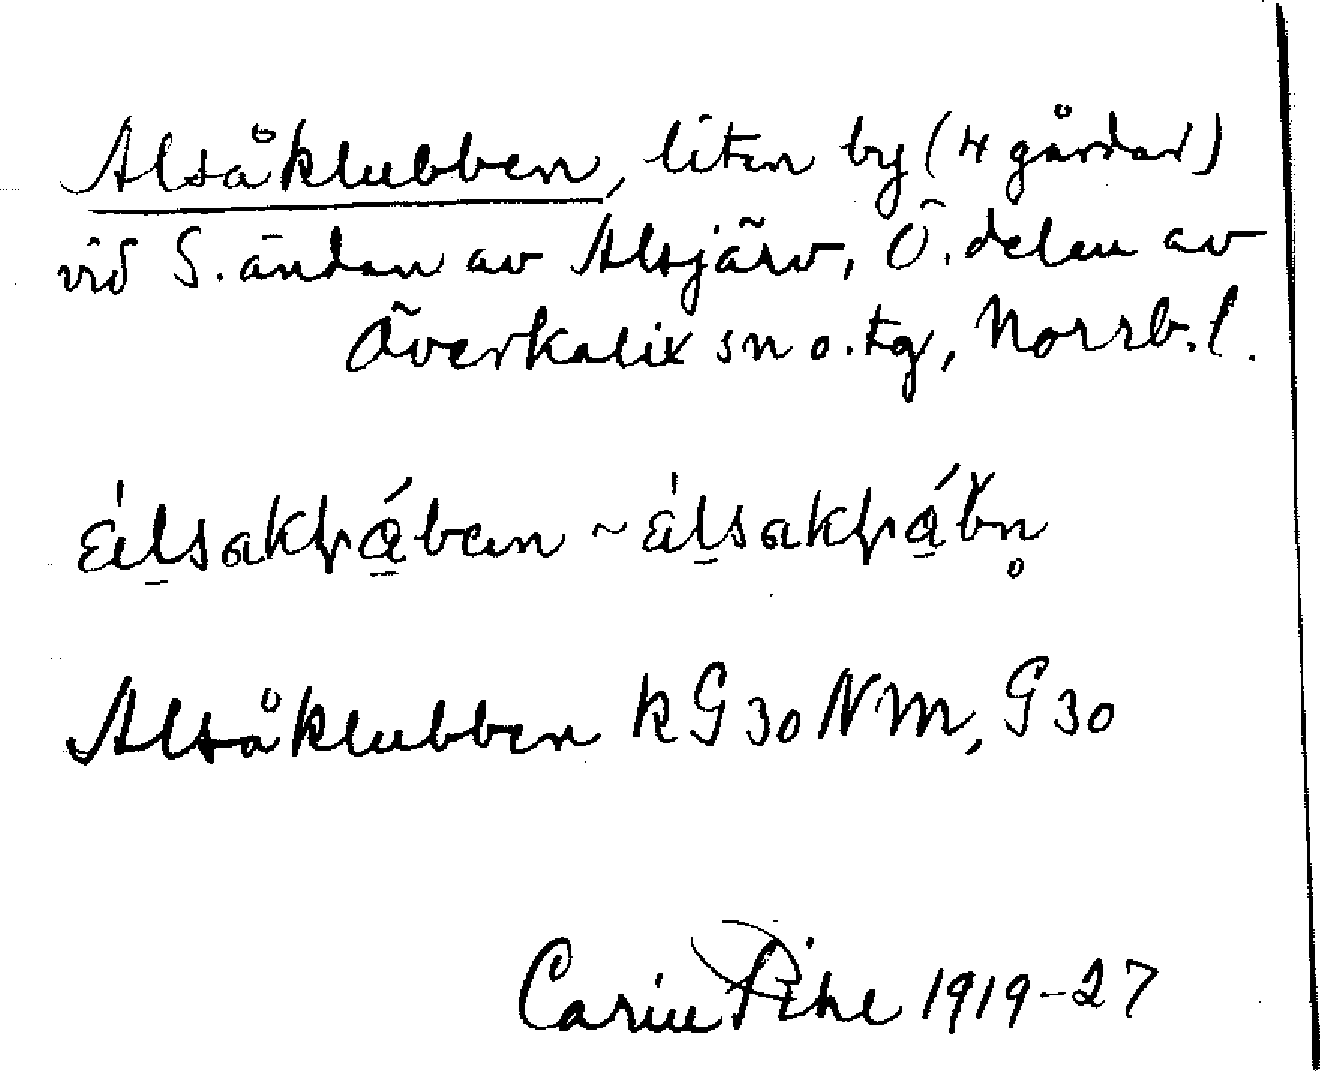 Alsåklubben, liten by (4 gårdar)
vid S. ändan av Alsjärv, Ö. delen av
Överkalix sn o. tg, Norrb. l.
Alsåklubben k G 30 NM, G 30
Carin Pihl 1919-27